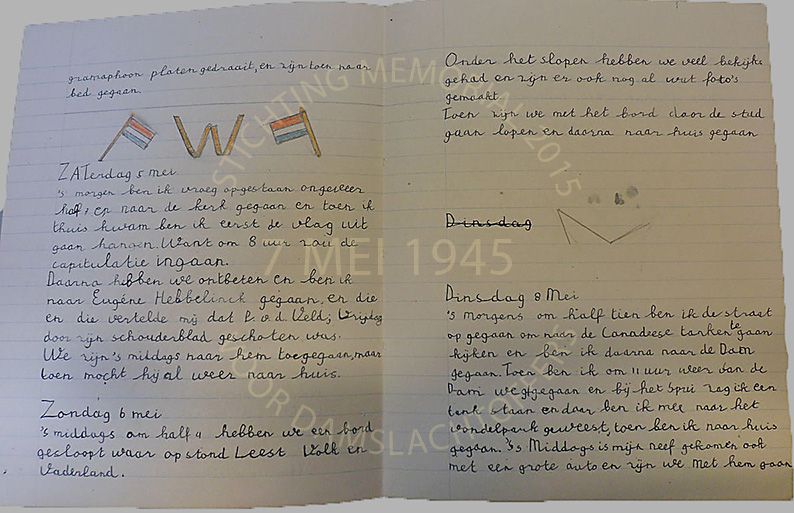 gramaphoon platen gedraait, en zijn toen naar
bed gegaan.
W
ZATerdag 5 mei
's morgen ben ik vroeg opgestaan ongeveer
half 7 en naar de kerk gegaan en toen ik
thuis kwam ben ik eerst de vlag uit
gaan hangen. Want om 8 uur zou de
capitulatie ingaan.
Daarna hebben we ontbeten en ben ik
naar Eugène Hebbelinck gegaan, en die
en die vertelde mij dat P. v.d. Veld; Vrijdag
door zijn schouderblad geschoten was.
We zijn 's middags naar hem toegegaan, maar
toen mocht hij al weer naar huis.
Zondag 6 mei
's middags om half 4 hebben we een bord
gesloopt waar op stond Leest Volk en
Vaderland.
Onder het slopen hebben we veel bekijks
gehad en zijn er ook nog al wat foto's
gemaakt.
Toen zijn we met het bord door de stad
gaan lopen en daarna naar huis gegaan
Dinsdag
Dinsdag 8 Mei
's morgens om half tien ben ik de straat
op gegaan om naar de Canadeese tanken te gaan
kijken en ben ik daarna naar de Dam
gegaan. Toen ben ik om 11 uur weer van de
Dam weggegaan en bij het Spui zag ik een
tank staan en daar ben ik mee naar het
vondelpark geweest, toen ben ik naar huis
gegaan. 's Middags is mijn neef gekomen ook
met een grote auto en zijn we met hem gaan
STICHTING MEMORIAL 2015
7 MEI 1945
VOOR DAMSLACHTOFFERS